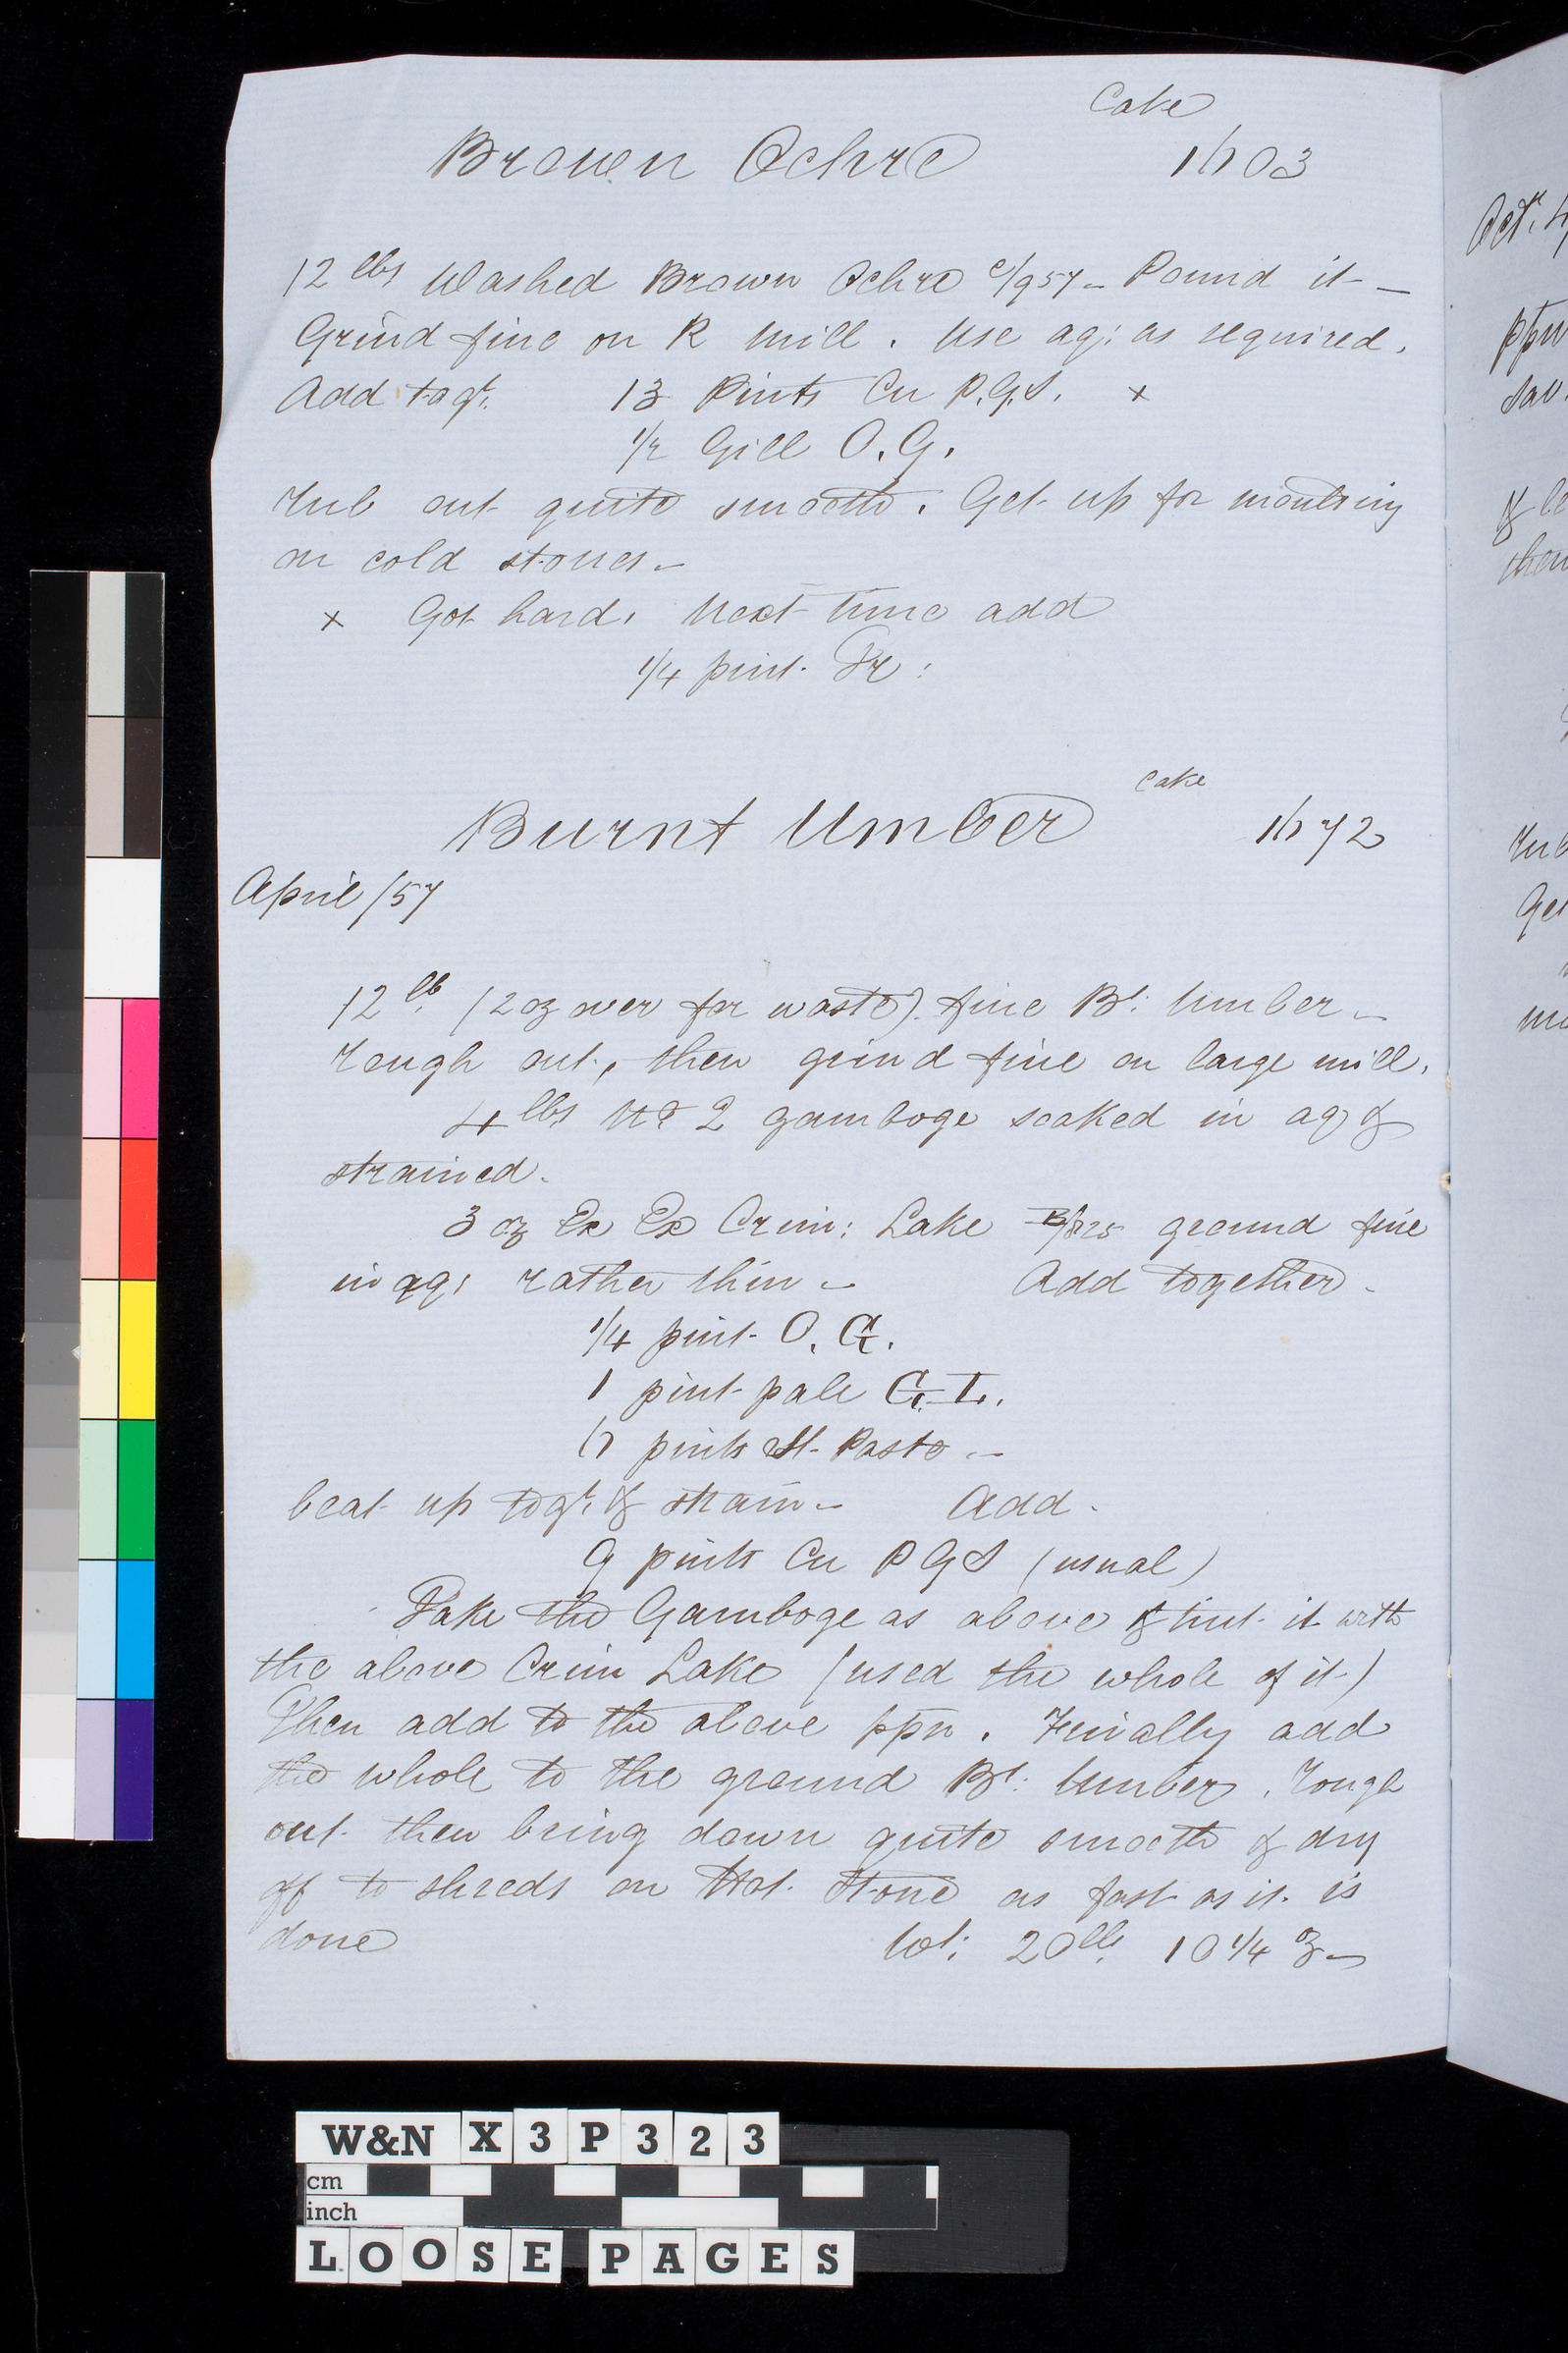 Cake
Brown Ochre 1603
12 lbs Washed Brown Ochre C/957 - Pound it -
Grind fine on R Mill. Use aq: as required.
Add togr. 13 Pints Cu P.G.S. x
1/2 Gill O.G.
Rub out quite smooth. Get up for moulding
on cold stones -
x Got hard. Next time add
1/4 pint Tr:
Cake
Burnt Umber 1672
April /57
12 lb. (2 oz over for waste). fine Bt: Umber -
Rough out, then grind fine on large mill.
4 lbs No 2 gamboge soaked in aq &
strained.
3 oz Ex Ex Crim: Lake B/825 ground fine
in aq: rather thin - Add together -
1/4 pint O. G.
1 pint pale G. L.
6 pints St. Paste. -
beat up togr. & strain - Add -
9 pints Cu P G S (usual)
Take the Gamboge as above & tint it with
the above Crim Lake (used the whole of it)
Then add to the above ppn. Finally add
the whole to the ground Bt: Umber. Rough
out then bring down quite smooth & dry
off to shreds on Hot Stone as fast as it is
done Wt: 20 lbs. 10 1/4 oz -
Oct. 4
ppn
Rub
W&N X3P323
cm
inch
LOOSE PAGES